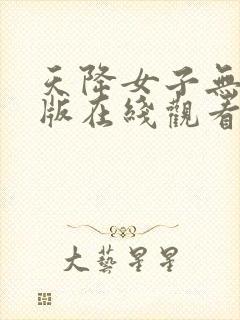 天降女子無
版在綫觀看
大藝星星